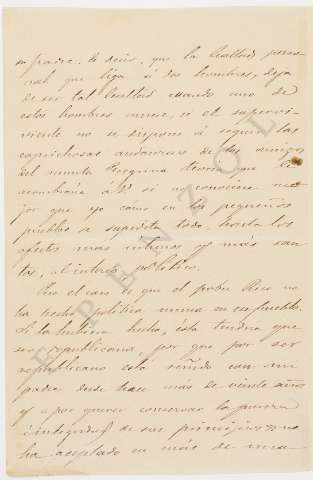 mi padre. Es decir, que la lealtad perso-
nal que liga a dos hombres, deja
de ser tal lealtad cuando uno de
estos hombres muere, si el supervi-
viente no se dispone a seguir las
caprichosas andanzas de los amigos
del muerto. Peregrina teoría que le
asombraría a V. si no conociese me-
jor que yo cómo en los pequeños
pueblos se supedita todo, hasta los
afectos más íntimos y más san-
tos, al interés político.
Pero el caso es que el pobre Rico no
ha hecho política nunca en su pueblo.
Si la hubiera hecho, esta tendría que
ser republicana, por que por ser
republicano está reñido con mi
padre desde hace más de veinte años
y por querer conservar la pureza
e integridad de sus principios no
ha aceptado en más de una
EPENZOL